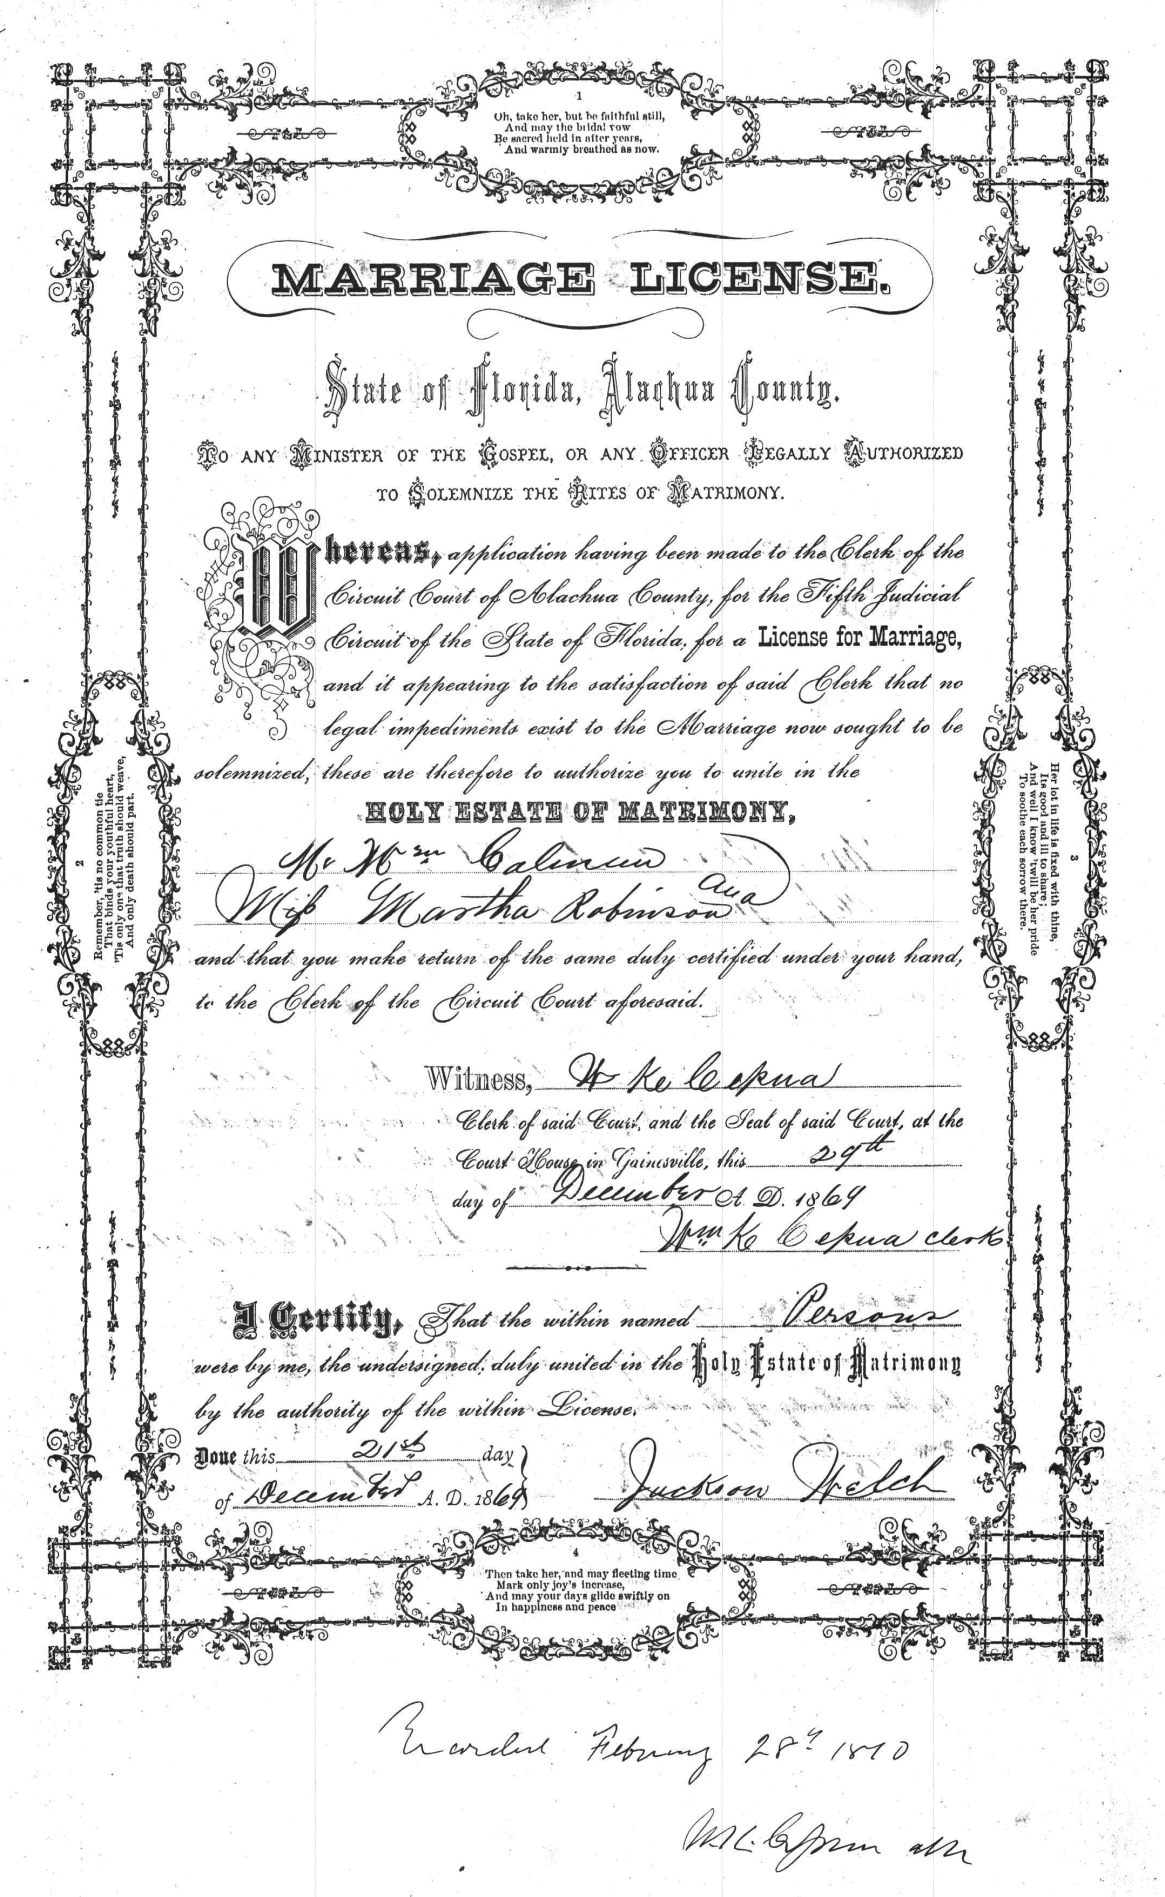 1
Oh, take her, but be faithful still,
And may the bridal vow
Be sacred held in after years,
And warmly breathed as now.
MARRIAGE LICENSE.
State of Florida, Alachua County.
TO ANY MINISTER OF THE GOSPEL, OR ANY OFFICER LEGALLY AUTHORIZED
TO SOLEMNIZE THE RITES OF MATRIMONY.
Whereas, application having been made to the Clerk of the
Circuit Court of Alachua County, for the Fifth Judicial
Circuit of the State of Florida, for a License for Marriage,
and it appearing to the satisfaction of said Clerk that no
legal impediments exist to the Marriage now sought to be
solemnized, these are therefore to authorize you to unite in the
HOLY ESTATE OF MATRIMONY,
Mr Wm Coleman
and
Miss Martha Robinson
and that you make return of the same duly certified under your hand,
to the Clerk of the Circuit Court aforesaid.
Witness, W K Cessna
Clerk of said Court, and the Seal of said Court, at the
Court House in Gainesville, this 29th
day of December A. D. 1869
Wm K Cessna clerk
I Certify, That the within named Persons
were by me, the undersigned, duly united in the Holy Estate of Matrimony
by the authority of the within License.
Done this 21st day
of December A. D. 1869
Jackson Welch
2
Remember, 'tis no common tie
That binds your youthful heart,
'Tis only one that truth should weave,
And only death should part.
3
Her lot in life is fixed with thine,
Its good and ill to share;
And well I know 'twill be her pride
To soothe each sorrow there.
4
Then take her, and may fleeting time
Mark only joy's increase,
And may your days glide swiftly on
In happiness and peace
Recorded February 28th 1870
W. K. Cessna clk